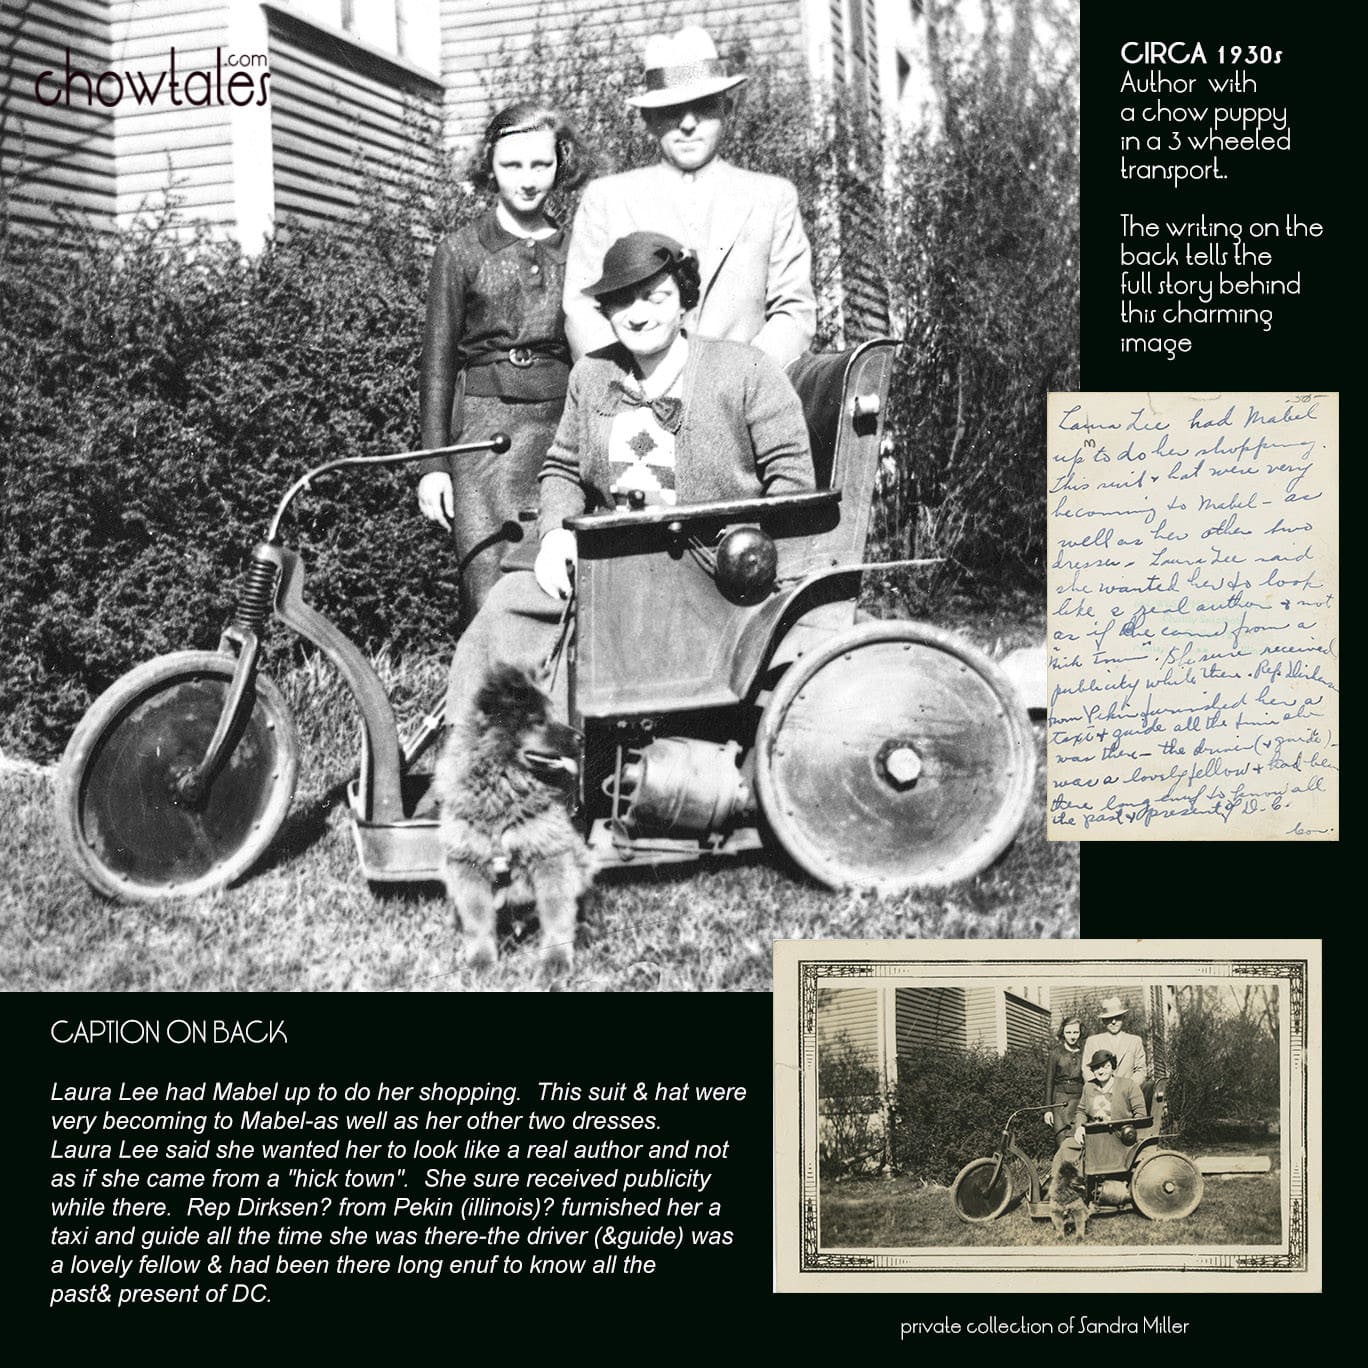 chowtales.com
CIRCA 1930s
Author with
a chow puppy
in a 3 wheeled
transport..
The writing on the
back tells the
full story behind
this charming
image
Laura Lee had Mabel
up to do her shopping.
This suit & hat were very
becoming to Mabel - as
well as her other two
dresses - Laura Lee said
she wanted her to look
like a real author & not
as if she came from a
"hick town". She sure received
publicity while there. Rep Dirksen
from Pekin furnished her a
taxi & guide all the time she
was there - the driver (& guide) -
was a lovely fellow & had been
there long enuf to know all
the past & present of D.C.
Con.
CAPTION ON BACK
Laura Lee had Mabel up to do her shopping. This suit & hat were
very becoming to Mabel-as well as her other two dresses.
Laura Lee said she wanted her to look like a real author and not
as if she came from a "hick town". She sure received publicity
while there. Rep Dirksen? from Pekin (illinois)? furnished her a
taxi and guide all the time she was there-the driver (&guide) was
a lovely fellow & had been there long enuf to know all the
past& present of DC.
private collection of Sandra Miller